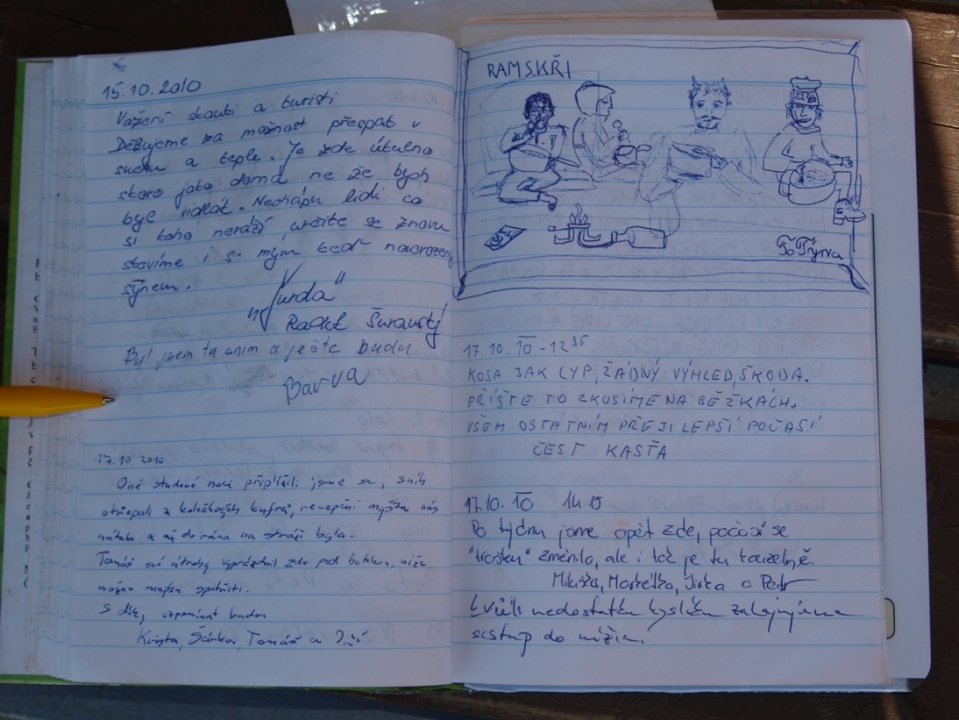 15.10.2010
Vážení skauti a turisti
Děkujeme za možnost přespat v
suchu a teple. Je zde útulno
skoro jako doma ne že bych
byl nalat. Nechápu lidi co
si toho neváží, určitě se znovu
stavíme i se mým teď narozeným
synem.
"Jurda"
Radek Suranský
Byl jsem tu anim a ještě budu
Barva
17.10.2010
Oné studené noci připlížili jsme se, sníh
otřepali z kožíšků, recepční myška nás
vítala a až do rána na stráži byla.
Tomáš své útroby vyprázdnil zde pod
S díky, vzpomínat budou
Tomáš a Jiří
RAMSKŘI
To Trýva
17.10. 10 - 12 35
KOSA JAK CYP, ŽÁDNÝ VÝHLED, ŠKODA.
PŘÍŠTE TO ZKUSÍME NA BĚŽKÁCH.
VŠEM OSTATNÍM PŘEJI LEPŠÍ POČASÍ
ČEST KASŤA
17.10. 10 14.15
Po týdnu jsme opět zde, počasí se
"trošku" změnilo, ale i tož je tu kouzelně.
Miluška, Markétka, Jirka a Petr
kvůli nedostatku kyslíku zahajujeme
sestup do nížin.